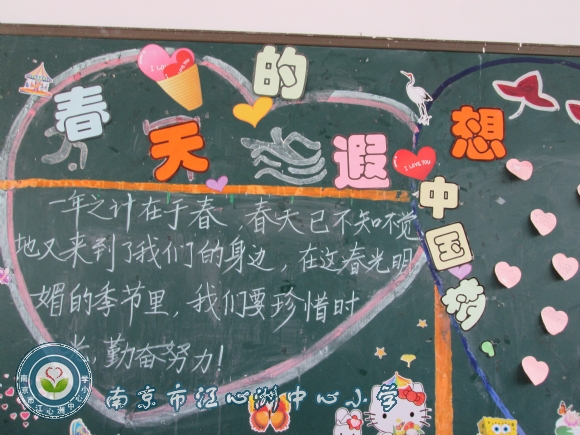 春天的遐想
I LOVE
I LOVE YOU
中国梦
一年之计在于春，春天已不知不觉
地又来到了我们的身边，在这春光明
媚的季节里，我们要珍惜时
光，勤奋努力！
南京市汪心洲中心小学